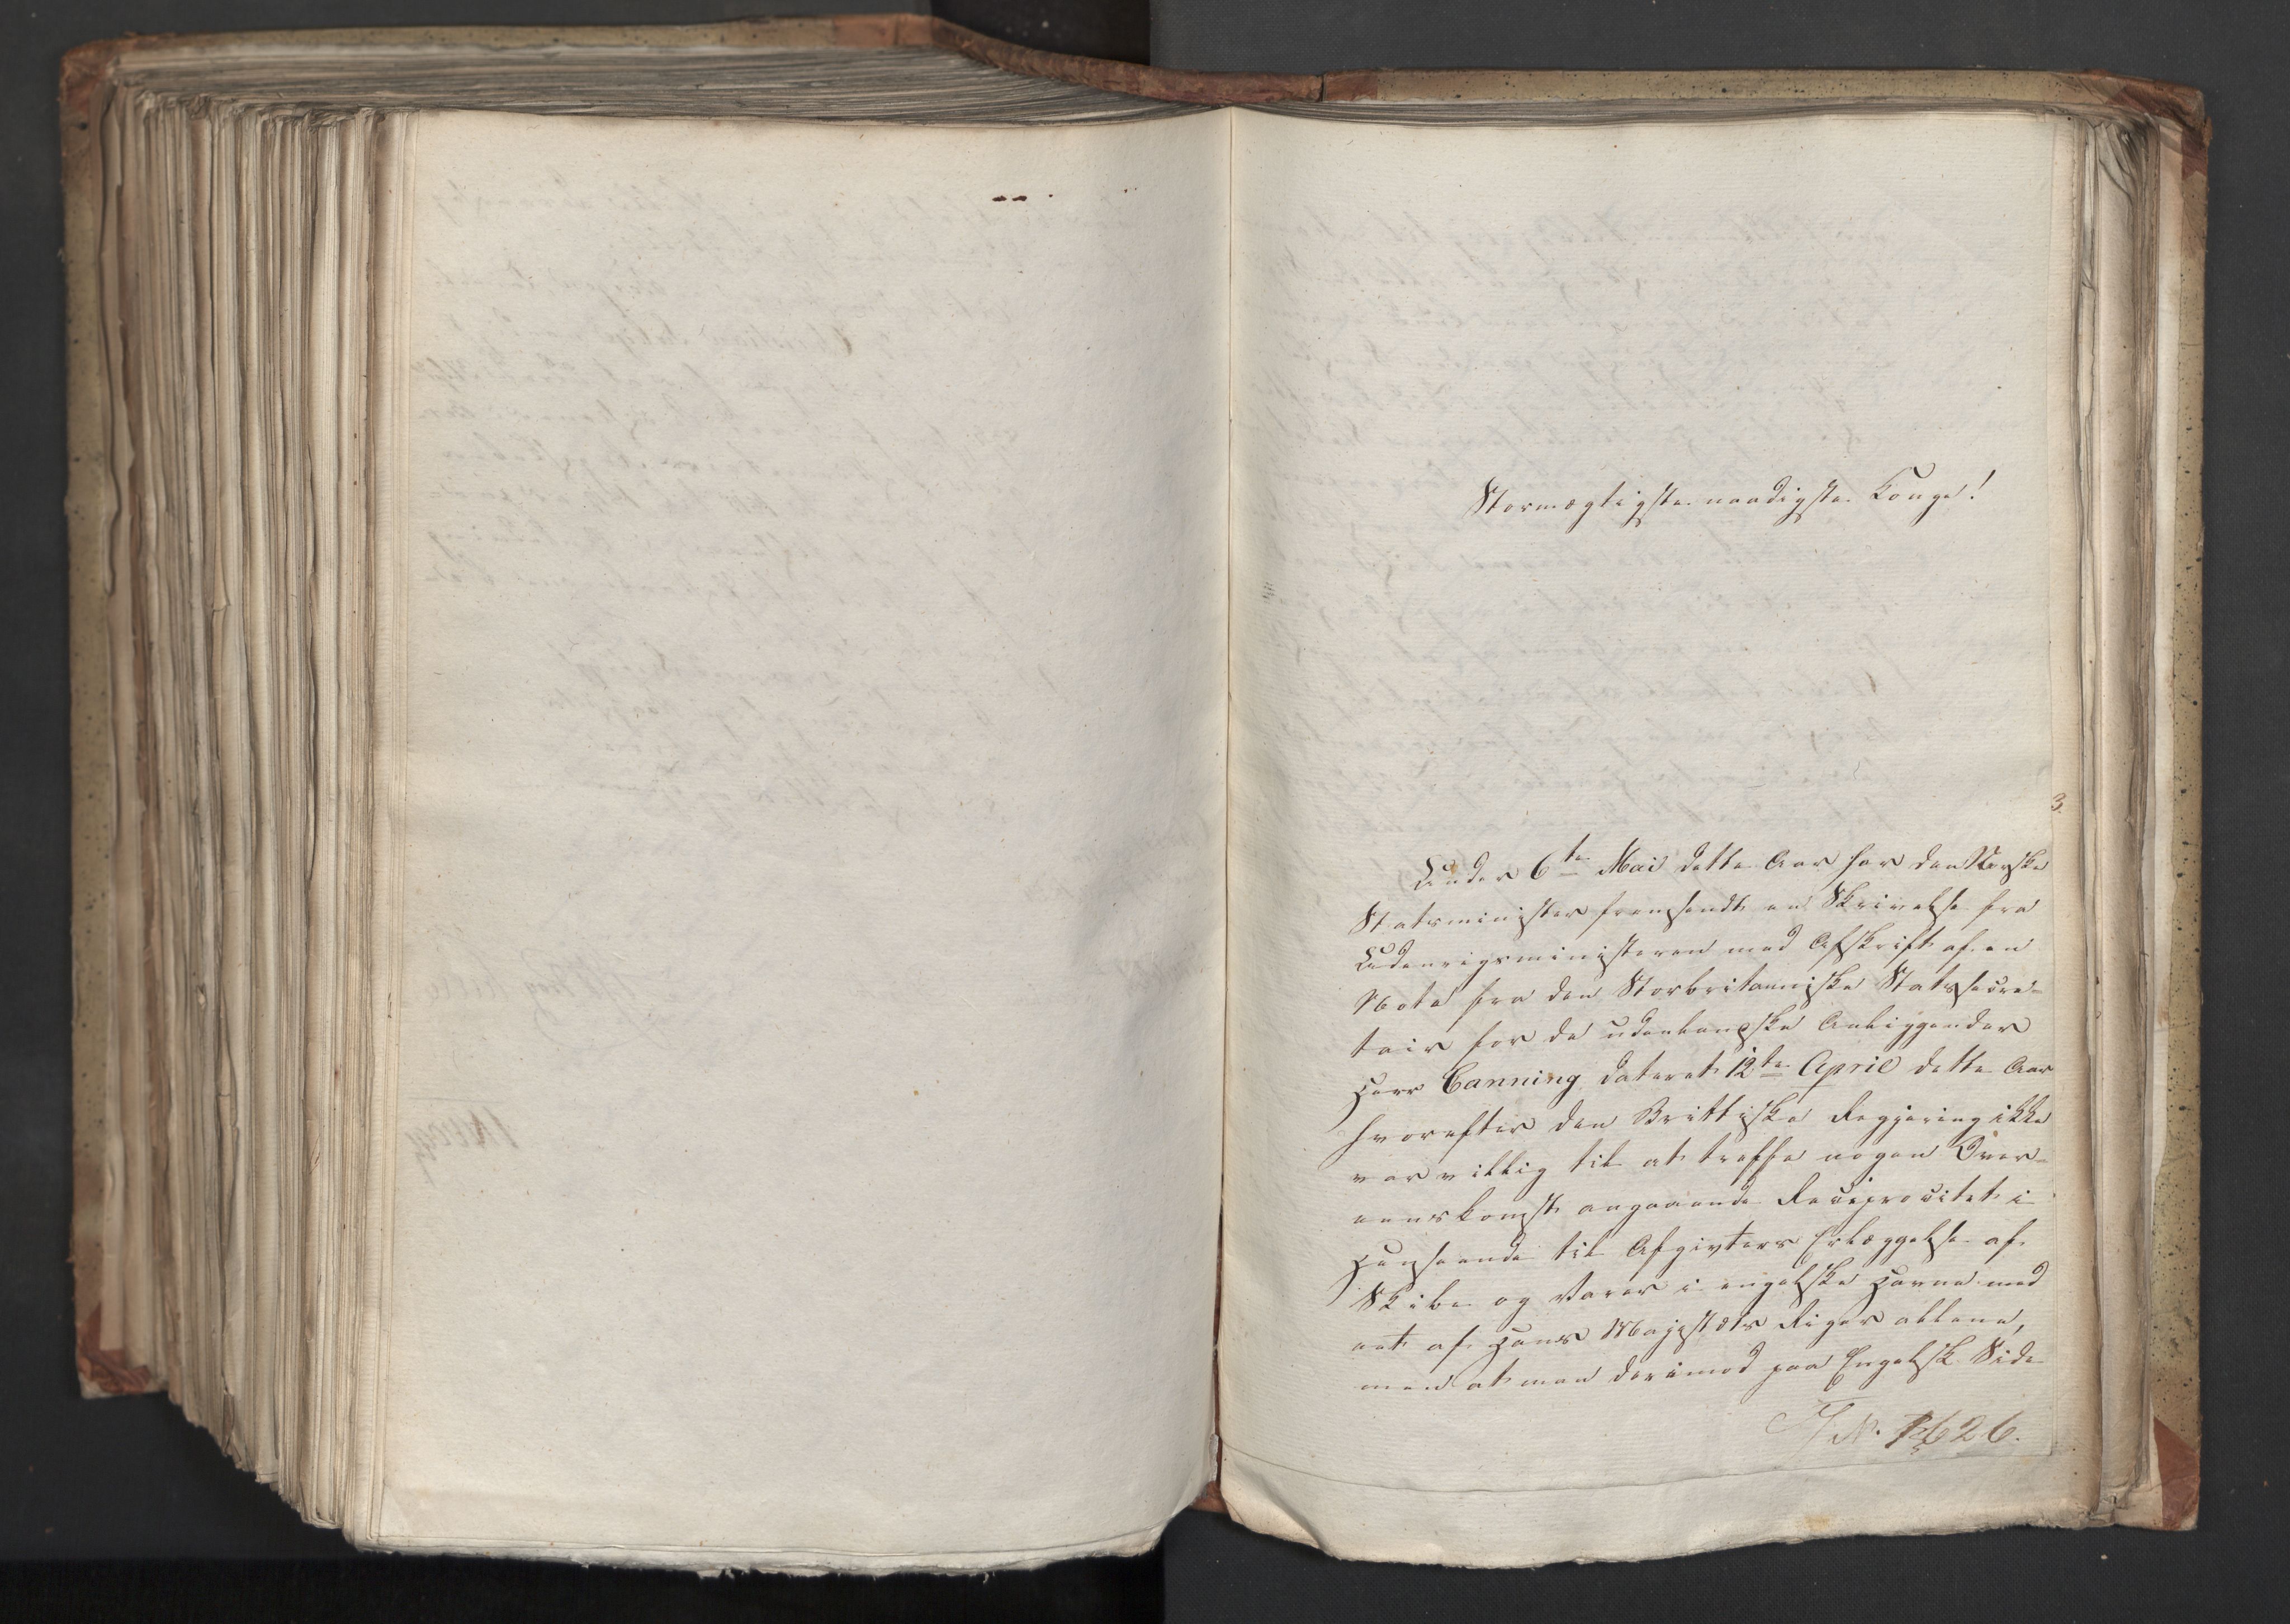 Stormægtigste naadigste Konge!
3
Under 6te Mai dette Aar har den Norske
Statsminister fremsendt en Skrivelse fra
Udenrigsministeren med Afskrift af en
Nota fra den Storbritanniske Statssecre-
tair for de udenlanske Anliggender
Herr Canning dateret 12te April dette Aar
hvorefter den Brittiske Regjering ikke
var villig til at træffe nogen Over-
eenskomst angaaende Reciprocitet i
Henseende til Afgivters Erlæggelse af
Skibe og Varer i engelske Havne med
eet af Hans Majestæts Riger allene,
men at man derimod paa Engelsk Side
N. 1626.